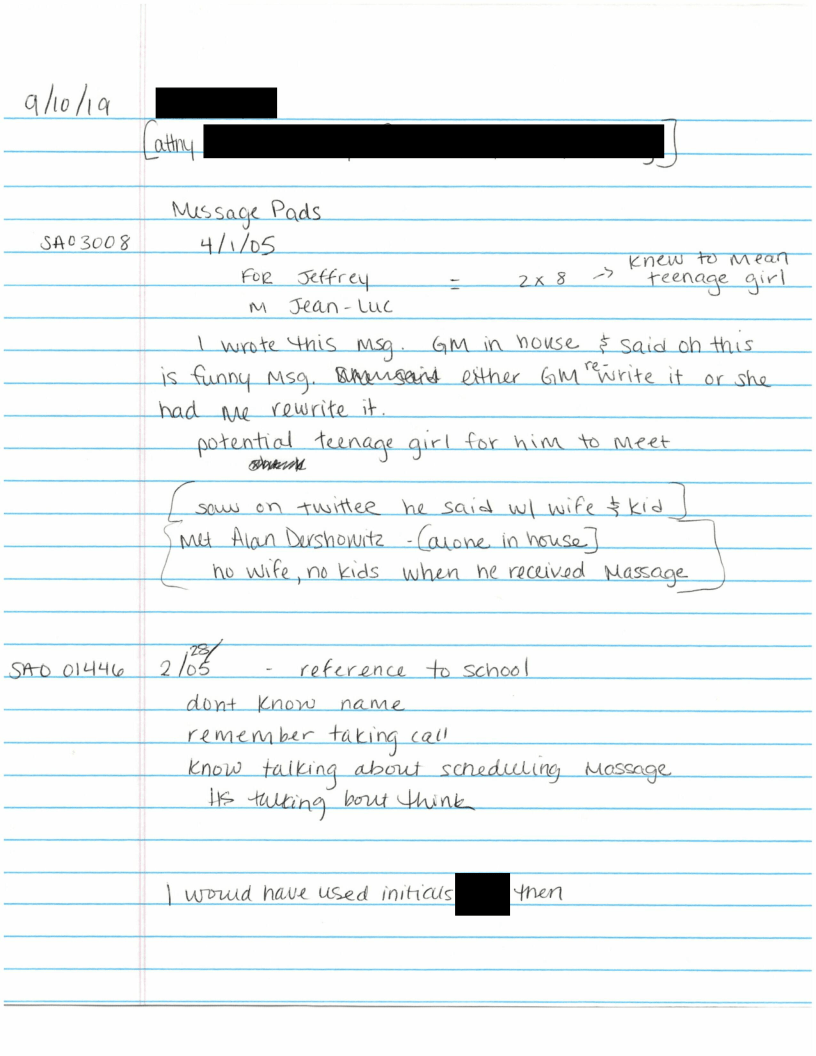 9/10/19
[attny ]
Message Pads
SAO3008 4/1/05
FOR Jeffrey = 2x8 -> knew to mean teenage girl
M Jean-Luc
I wrote this msg. GM in house & said oh this
is funny msg. either GM rewrite it or she
had me rewrite it.
potential teenage girl for him to meet
[saw on twitter he said w/ wife & kid]
[Met Alan Dershowitz - [alone in house]
no wife, no kids when he received massage]
SAO 01446 2/28/05 - reference to school
dont know name
remember taking call
know talking about scheduling massage
talking bout think
I would have used initials then